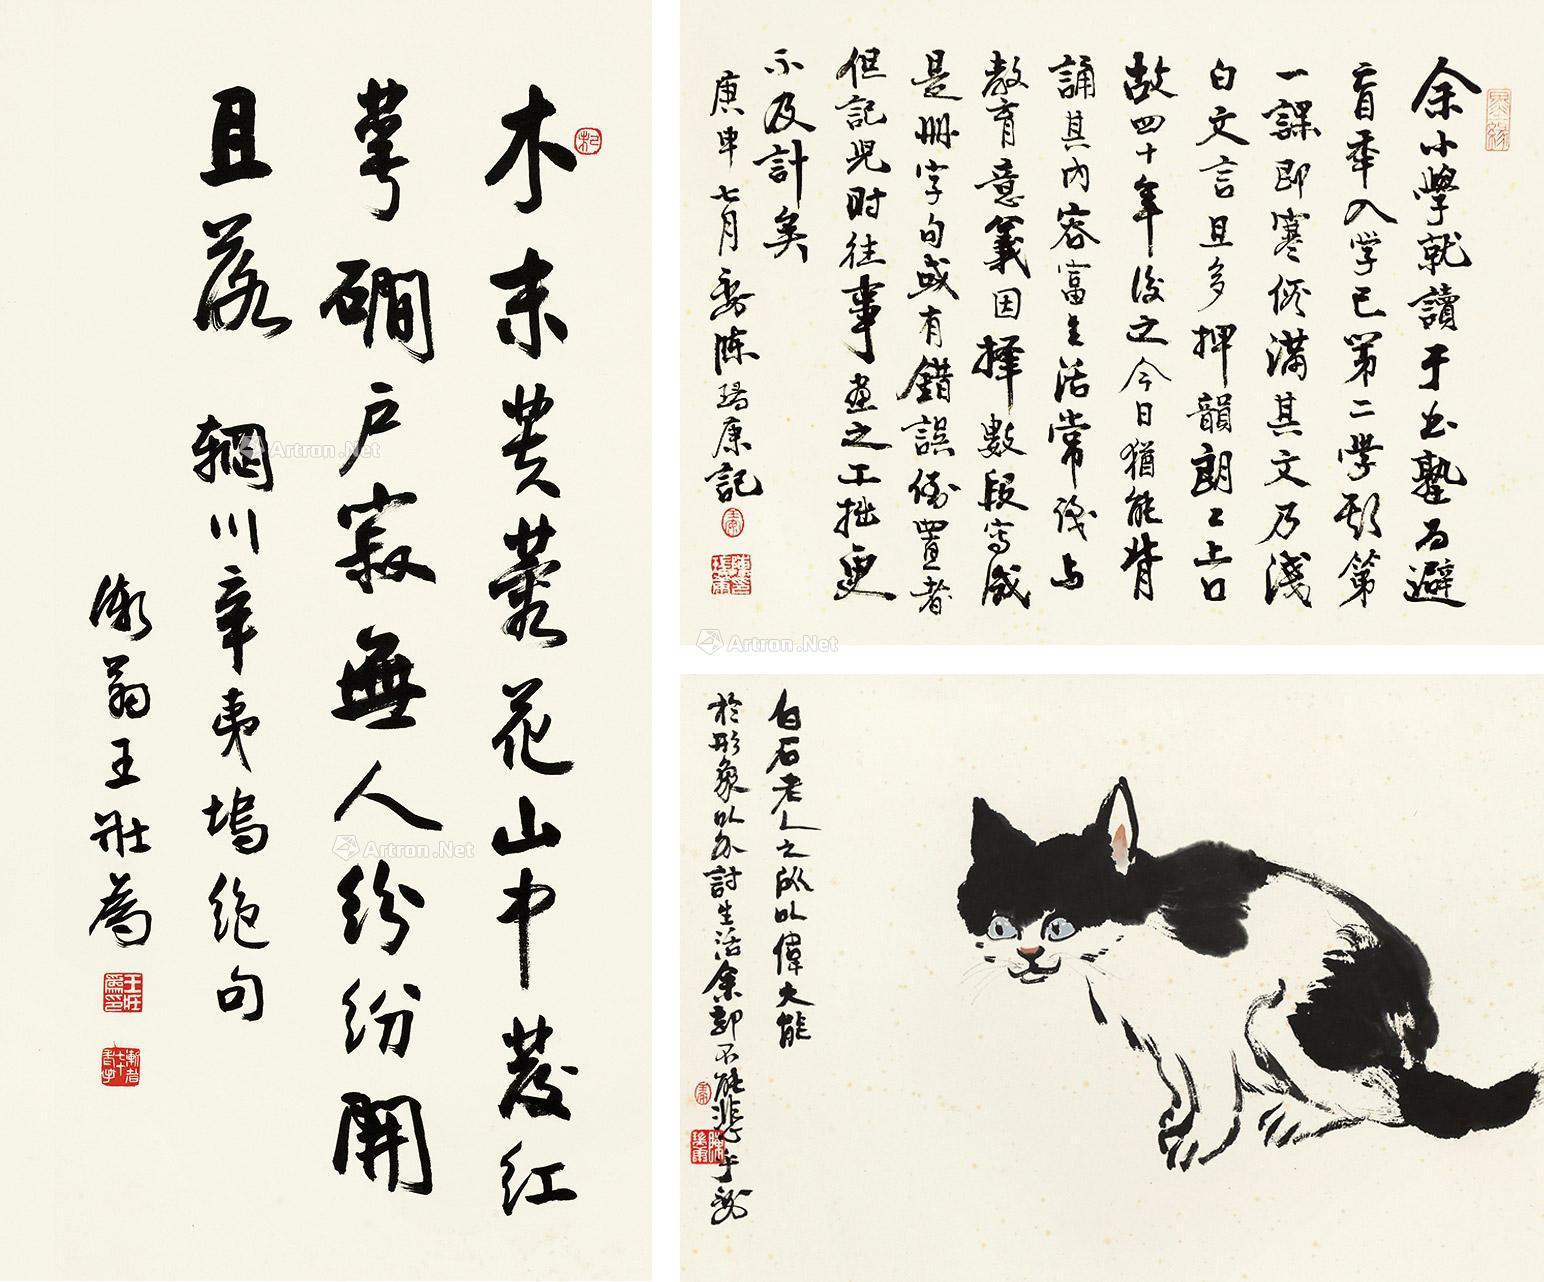 木末芙蓉花山中發紅
萼磵戶寂無人紛紛開
且落
輞川辛夷塢絕句
漸翁王壯為
王壯為印
余小學就讀于書塾為避
年入學已第二學期第
一課即寒假滿其文乃淺
白文言且多押韻朗〻上口
故四十年後之今日猶能背
誦其內容富生活常識与
教育意義因擇數段寫成
是冊字句或有錯誤倒置者
但記兒時往事畫之工拙更
不及計矣
庚申七月陳瑞康記
白石老人之所以偉大能
於形象以外討生活余都不能悲乎
Artron.Net
Artron.Net
Artron.Net